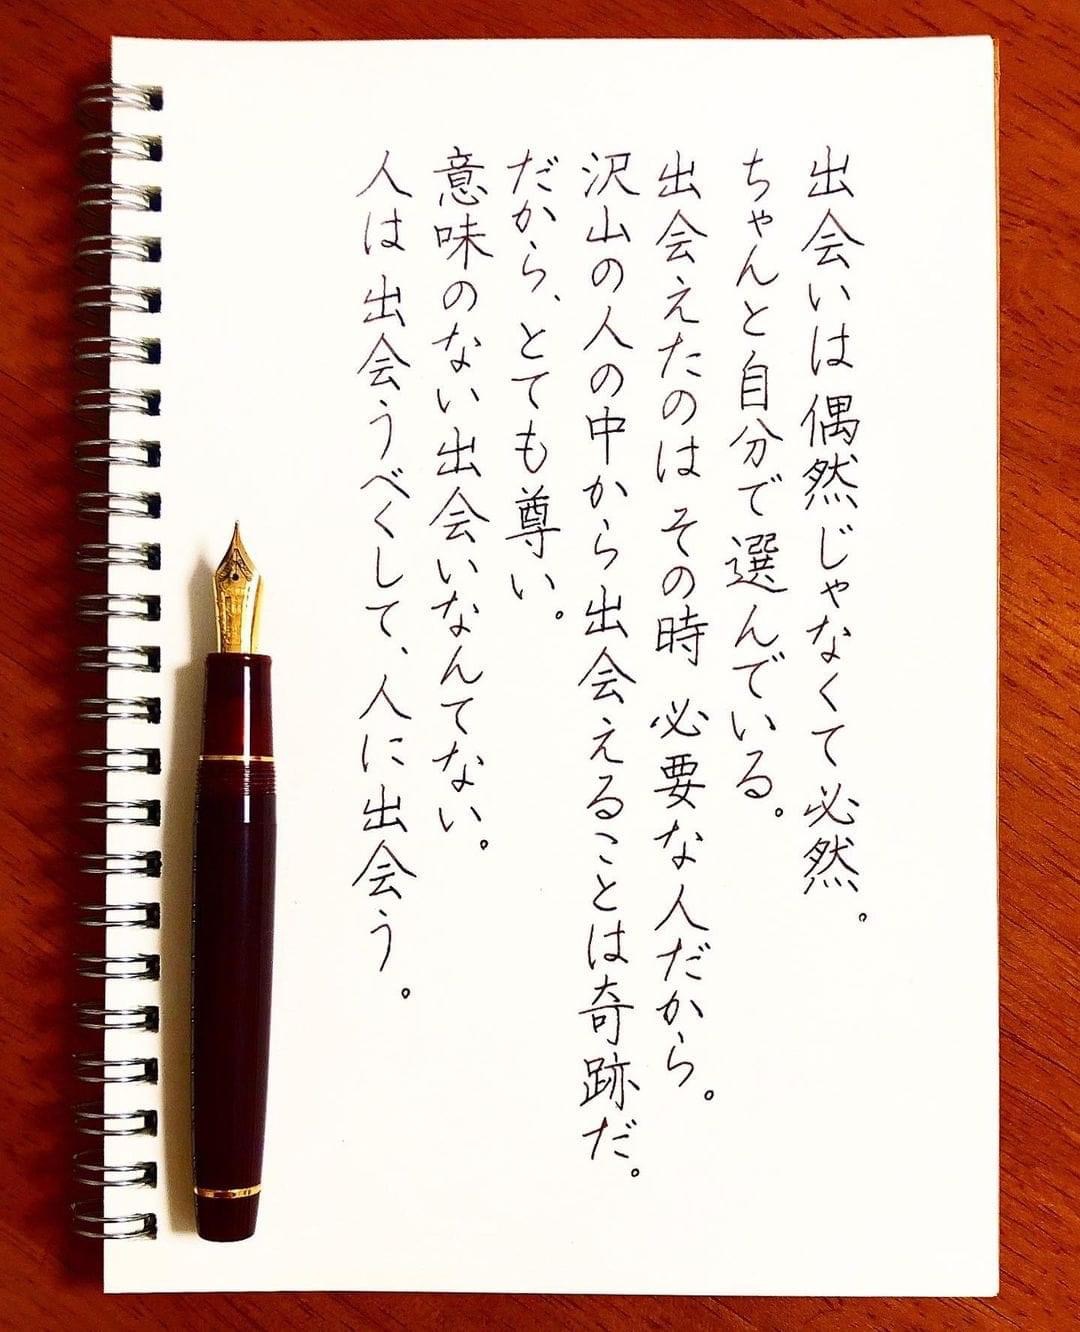 出会いは偶然じゃなくて必然。
ちゃんと自分で選んでいる。
出会えたのはその時 必要な人だから。
沢山の人の中から出会えることは奇跡だ。
だから、とても尊い。
意味のない出会いなんてない。
人は出会うべくして、人に出会う。